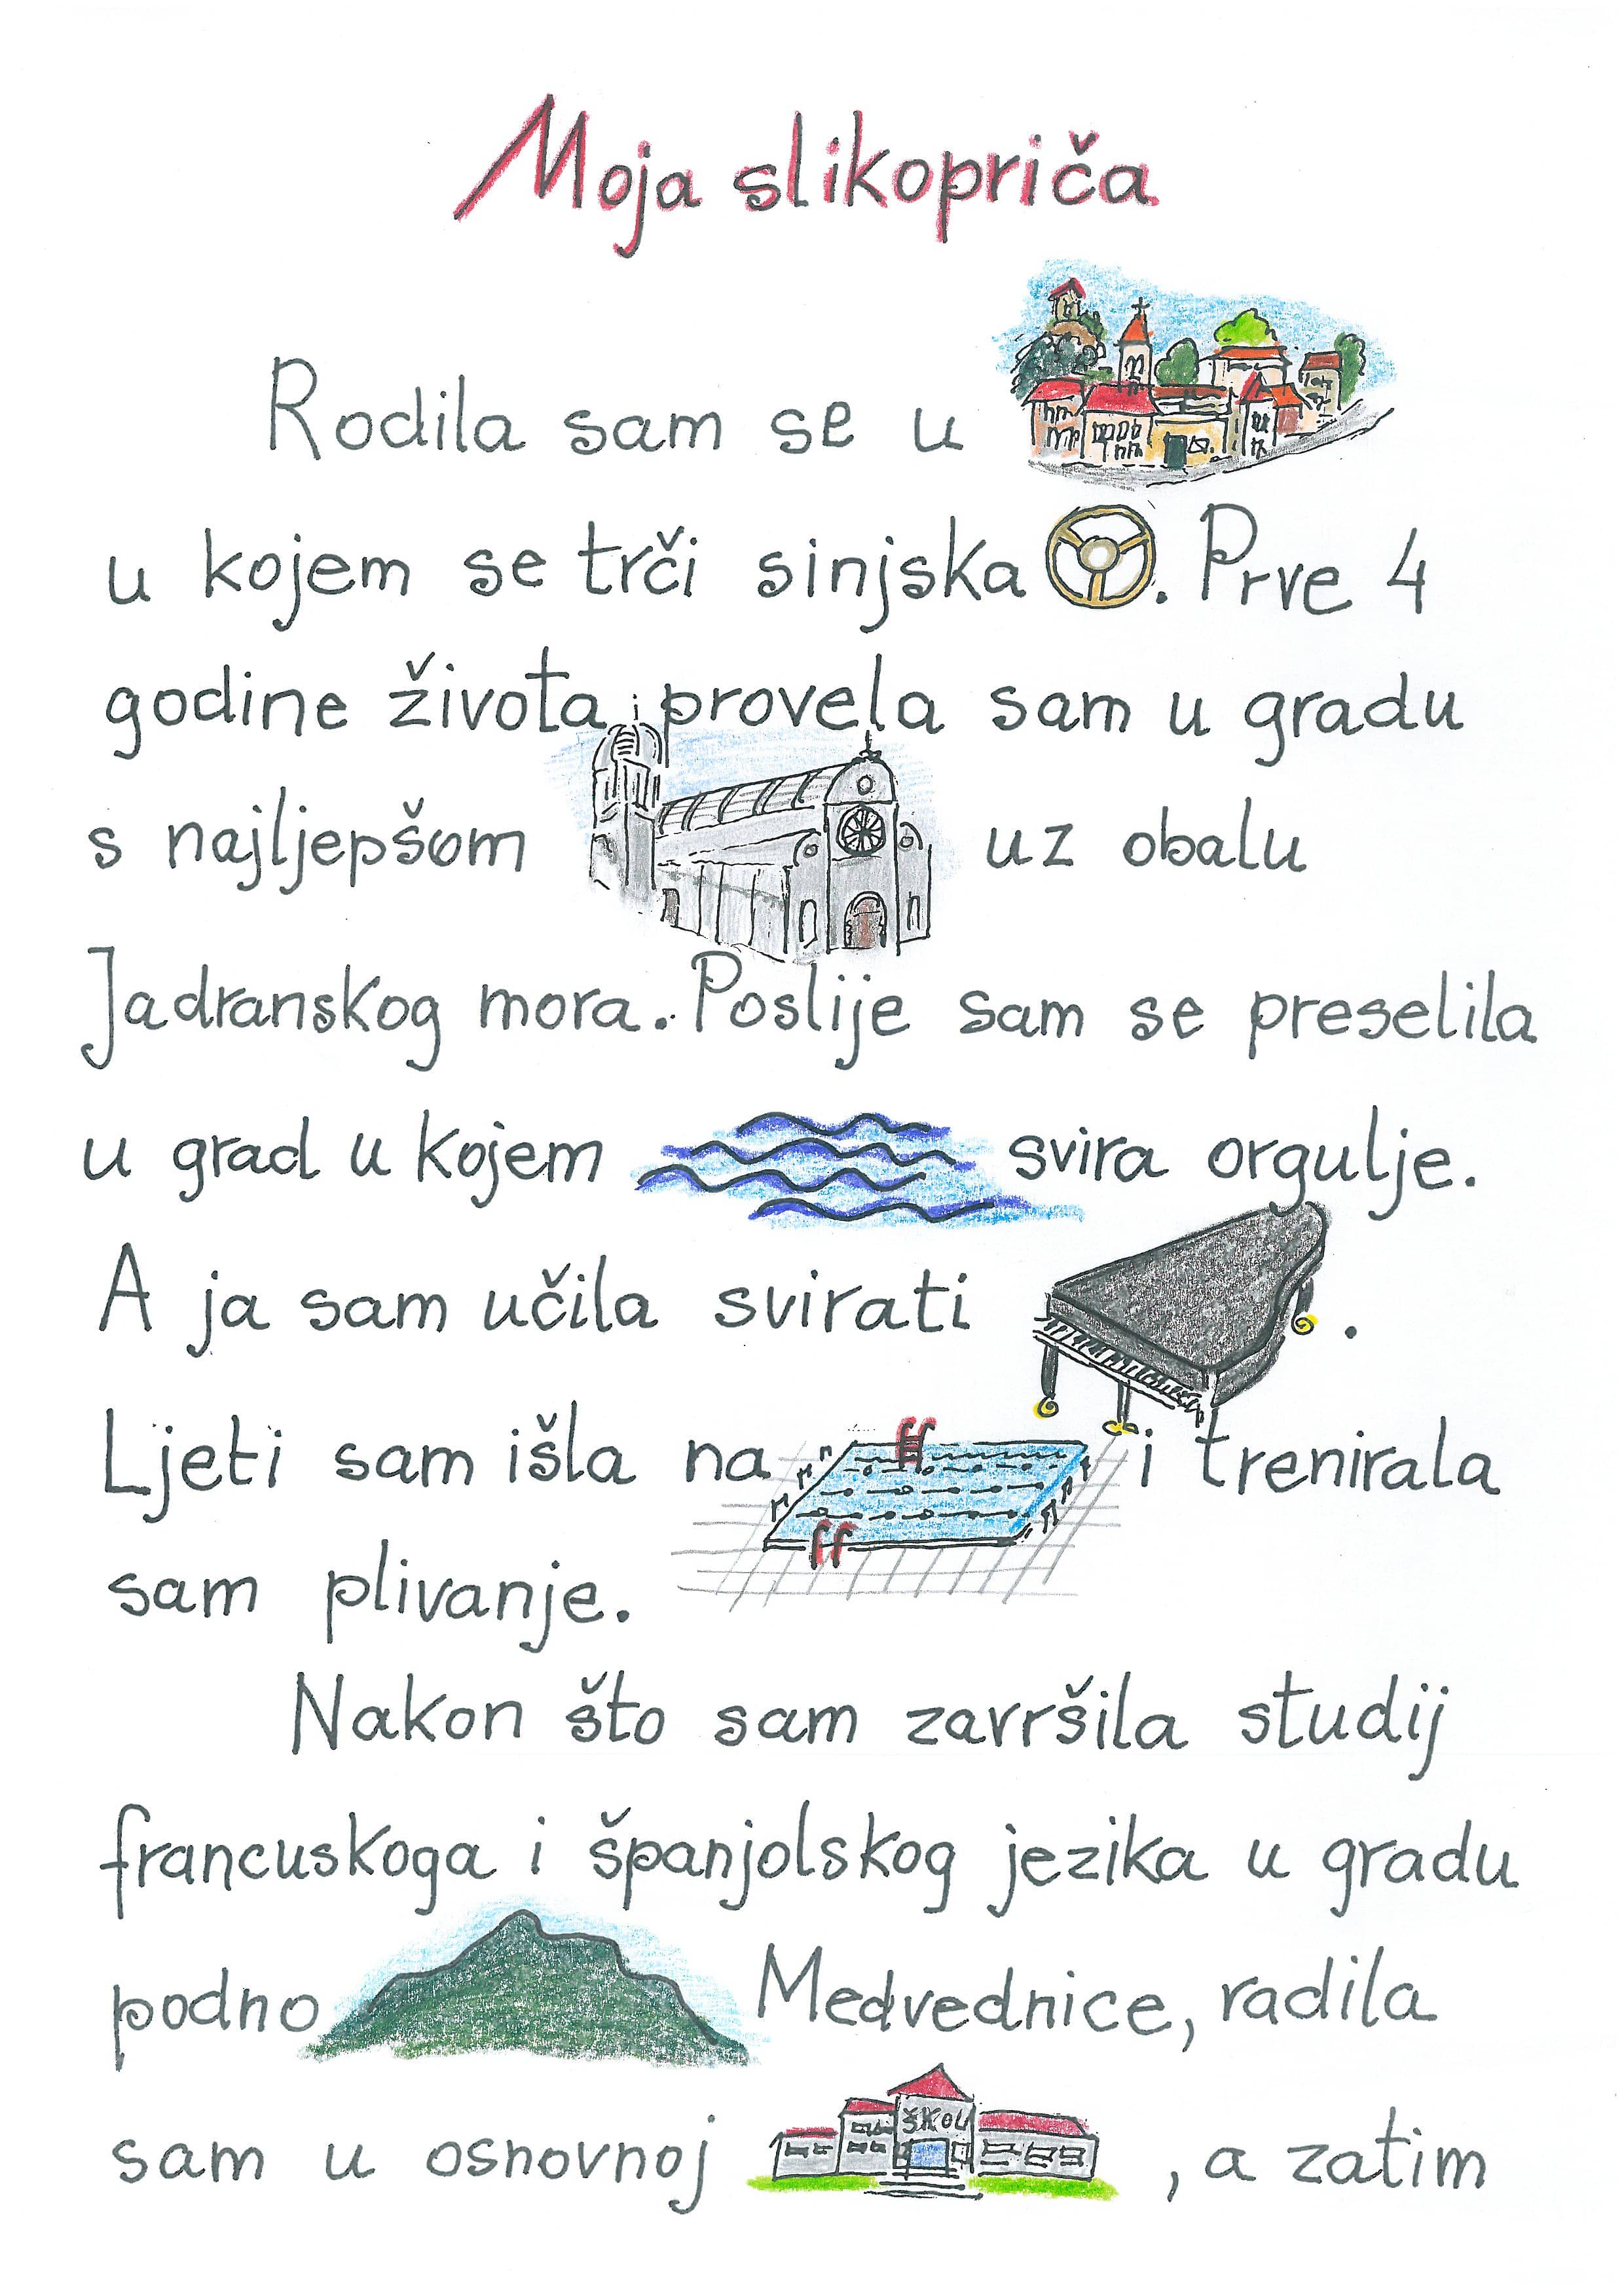 Moja slikopriča
Rodila sam se u
u kojem se trči sinjska . Prve 4
godine života provela sam u gradu
s najljepšom uz obalu
Jadranskog mora. Poslije sam se preselila
u grad u kojem svira orgulje.
A ja sam učila svirati .
Ljeti sam išla na i trenirala
sam plivanje.
Nakon što sam završila studij
francuskoga i španjolskog jezika u gradu
podno Medvednice, radila
ŠKOL
sam u osnovnoj , a zatim